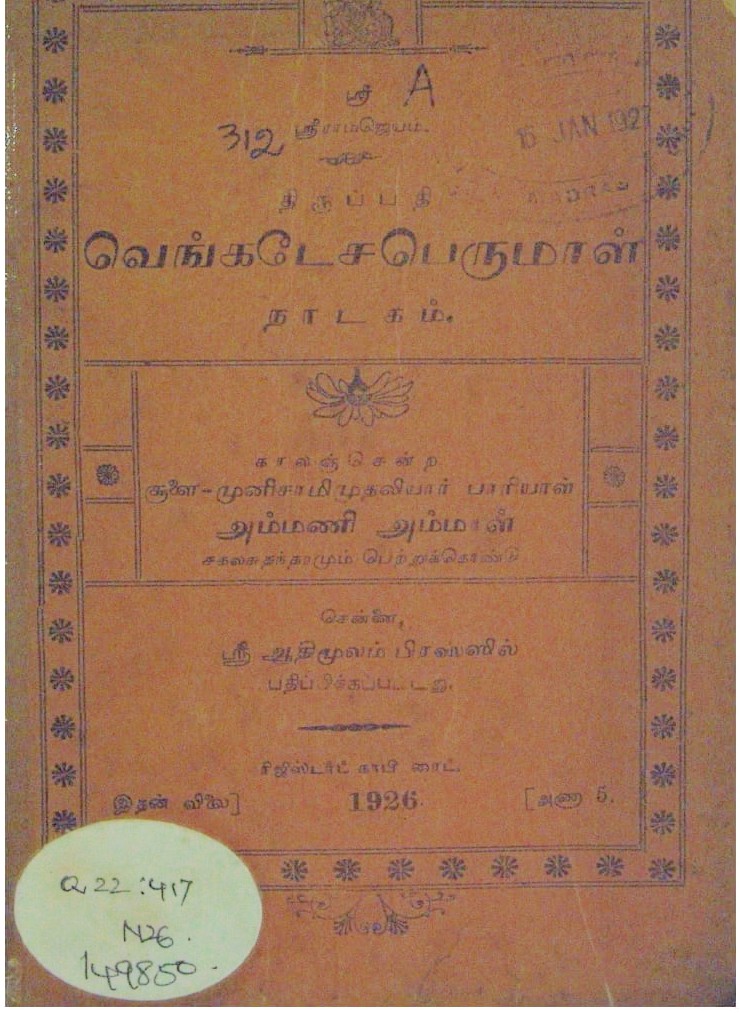 ஸ்ரீ A
312 ஸ்ரீராமஜெயம்.
15 JAN 1927
MADRAS
திருப்பதி
வெங்கடேசபெருமாள்
நாடகம்.
காலஞ்சென்ற
சூளை-முனிசாமிமுதலியார் பாரியாள்
அம்மணி அம்மாள்
சகலசுதந்தரமும் பெற்றுக்கொண்டு
சென்னை,
ஸ்ரீ ஆதிமூலம் பிரஸ்ஸில்
பதிப்பிக்கப்பட்டது.
ரிஜிஸ்டர்ட் காபி ரைட்.
இதன் விலை] 1926. [அணா 5.
Q22:417
N26.
149850.